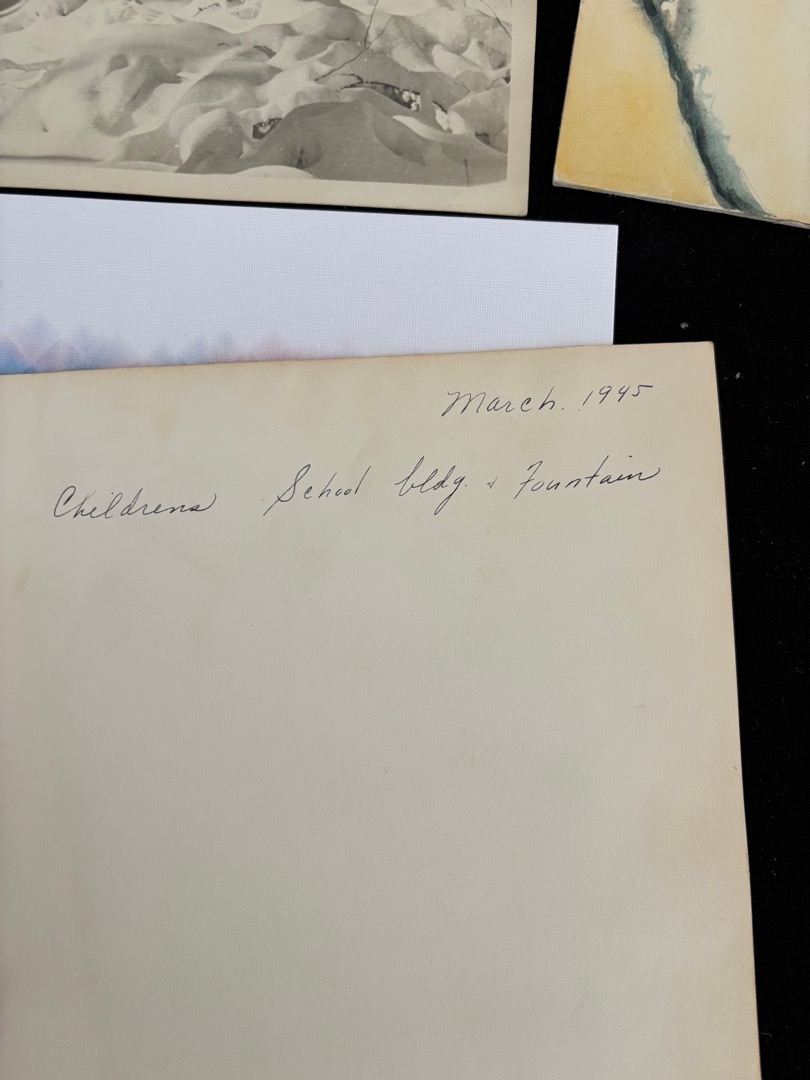 March. 1945
Childrens School bldg. & Fountain